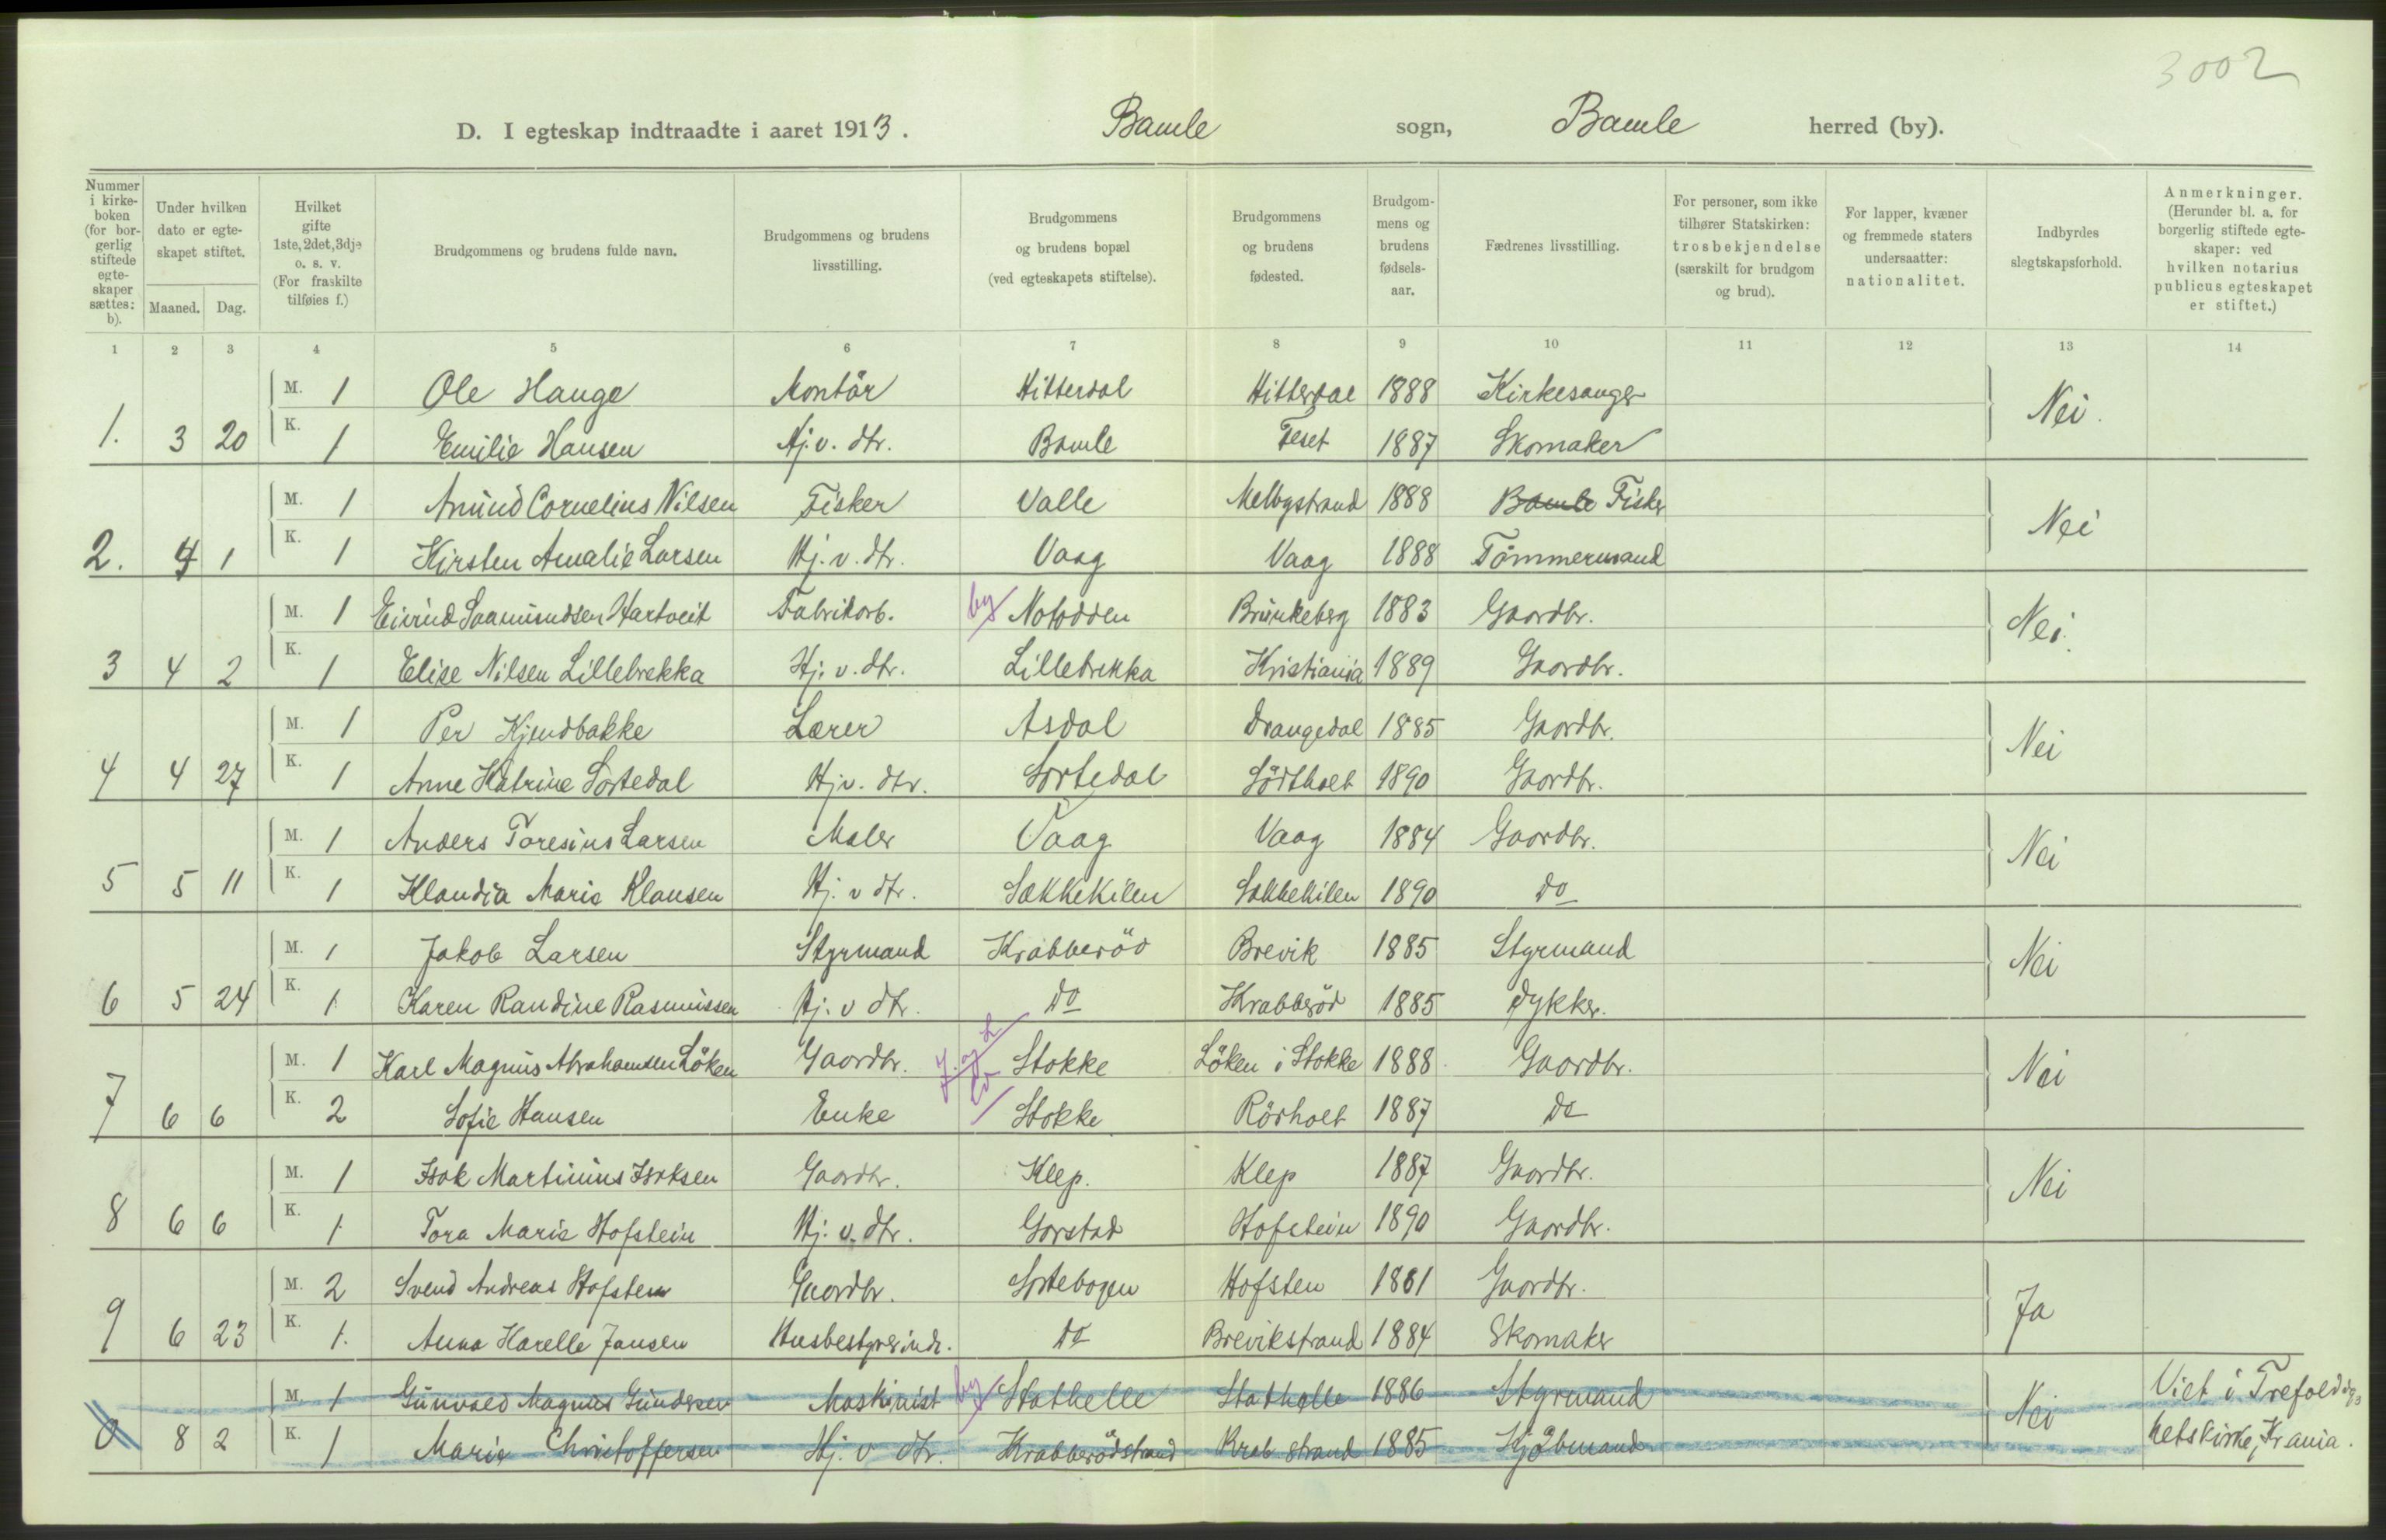 3002
D. I egteskap indtraadte i aaret 1913. Bamle sogn, Bamle herred (by).
Nummer i kirkeboken (for borgerlig stiftede egteskaper sættes: b). | Under hvilken dato er egteskapet stiftet. Maaned. Dag. | Hvilket gifte 1ste, 2det, 3dje o. s. v. (For fraskilte tilføies f.) | Brudgommens og brudens fulde navn. | Brudgommens og brudens livsstilling. | Brudgommens og brudens bopæl (ved egteskapets stiftelse). | Brudgommens og brudens fødested. | Brudgommens og brudens fødselsaar. | Fædrenes livsstilling. | For personer, som ikke tilhører Statskirken: trosbekjendelse (særskilt for brudgom og brud). | For lapper, kvæner og fremmede staters undersaatter: nationalitet. | Indbyrdes slegtskapsforhold. | Anmerkninger. (Herunder bl. a. for borgerlig stiftede egteskaper: ved hvilken notarius publicus egteskapet er stiftet.)
1 2 3 4 5 6 7 8 9 10 11 12 13 14
M. 1 Ole Hauge Montör Hitterdal Hitterdal 1888 Kirkesanger
1. 3 20 K. 1 Emilie Hansen Hj. v. dtr. Bamle Feset 1887 Skomaker Nei.
M. 1 Amund Cornelius Nilsen Fisker Valle Melbystrand 1888 Bamle Fisker
2. 4 1 K. 1 Kirsten Amalie Larsen Hj. v. dtr. Vaag Vaag 1888 Tömmermand Nei
M. 1 Eivind Saamundsen Hartveit Fabrikarb. by Notodden Brunkeberg 1883 Gaardbr.
3 4 2 K. 1 Elise Nilsen Lillebrekka Hj. v. dtr. Lillebrekka Kristiania 1889 Gaardbr. Nei.
M. 1 Per Kjendbakke Lærer Asdal Drangedal 1885 Gaardbr.
4 4 27 K. 1 Anne Katrine Sortedal Hj v. dtr. Sortedal 1890 Gaardbr. Nei
M. 1 Anders Toresius Larsen Maler Vaag Vaag 1884 Gaardbr.
5 5 11 K. 1 Klaudia Marie Klausen Hj. v dtr. Sækkekilen Sækkekilen 1890 do Nei
M. 1 Jakob Larsen Styrmand Krabberöd Brevik 1885 Styrmand
6 5 24 K. 1 Karen Randine Rasmussen Hj. v dtr. do Krabberöd 1885 Dykker. Nei
M. 1 Karl Magnus Abrahamsen Löken Gaardbr. J. og L. Stokke Löken i Stokke 1888 Gaardbr.
7 6 6 K. 2 Sofie Hansen Enke Stokke Rörholt 1887 do Nei
M. 1 Isak Martinius Isaksen Gaardbr. Klep. Klep 1887 Gaardbr.
8 6 6 K. 1 Tora Marie Hofstein Hj. v. dtr. Gorstad Hofstein 1890 Gaardbr. Nei
M. 2 Svend Andreas Hofsten Gaardbr. Sortebogen Hofsten 1861 Gaardbr.
9 6 23 K. 1. Anna Karelle Jansen Husbestyrerinde. do Brevikstrand 1884 Skomaker Ja
M. 1 Gunvald Magnus Gundersen Maskinist by Stathelle Stathelle 1886 Styrmand Viet i Trefoldig
8 2 K. 1 Marie Christoffersen Hj. v dtr. Krabberödstrand Krab strand 1885 Kjöbmand Nei hetskirke, Krania.